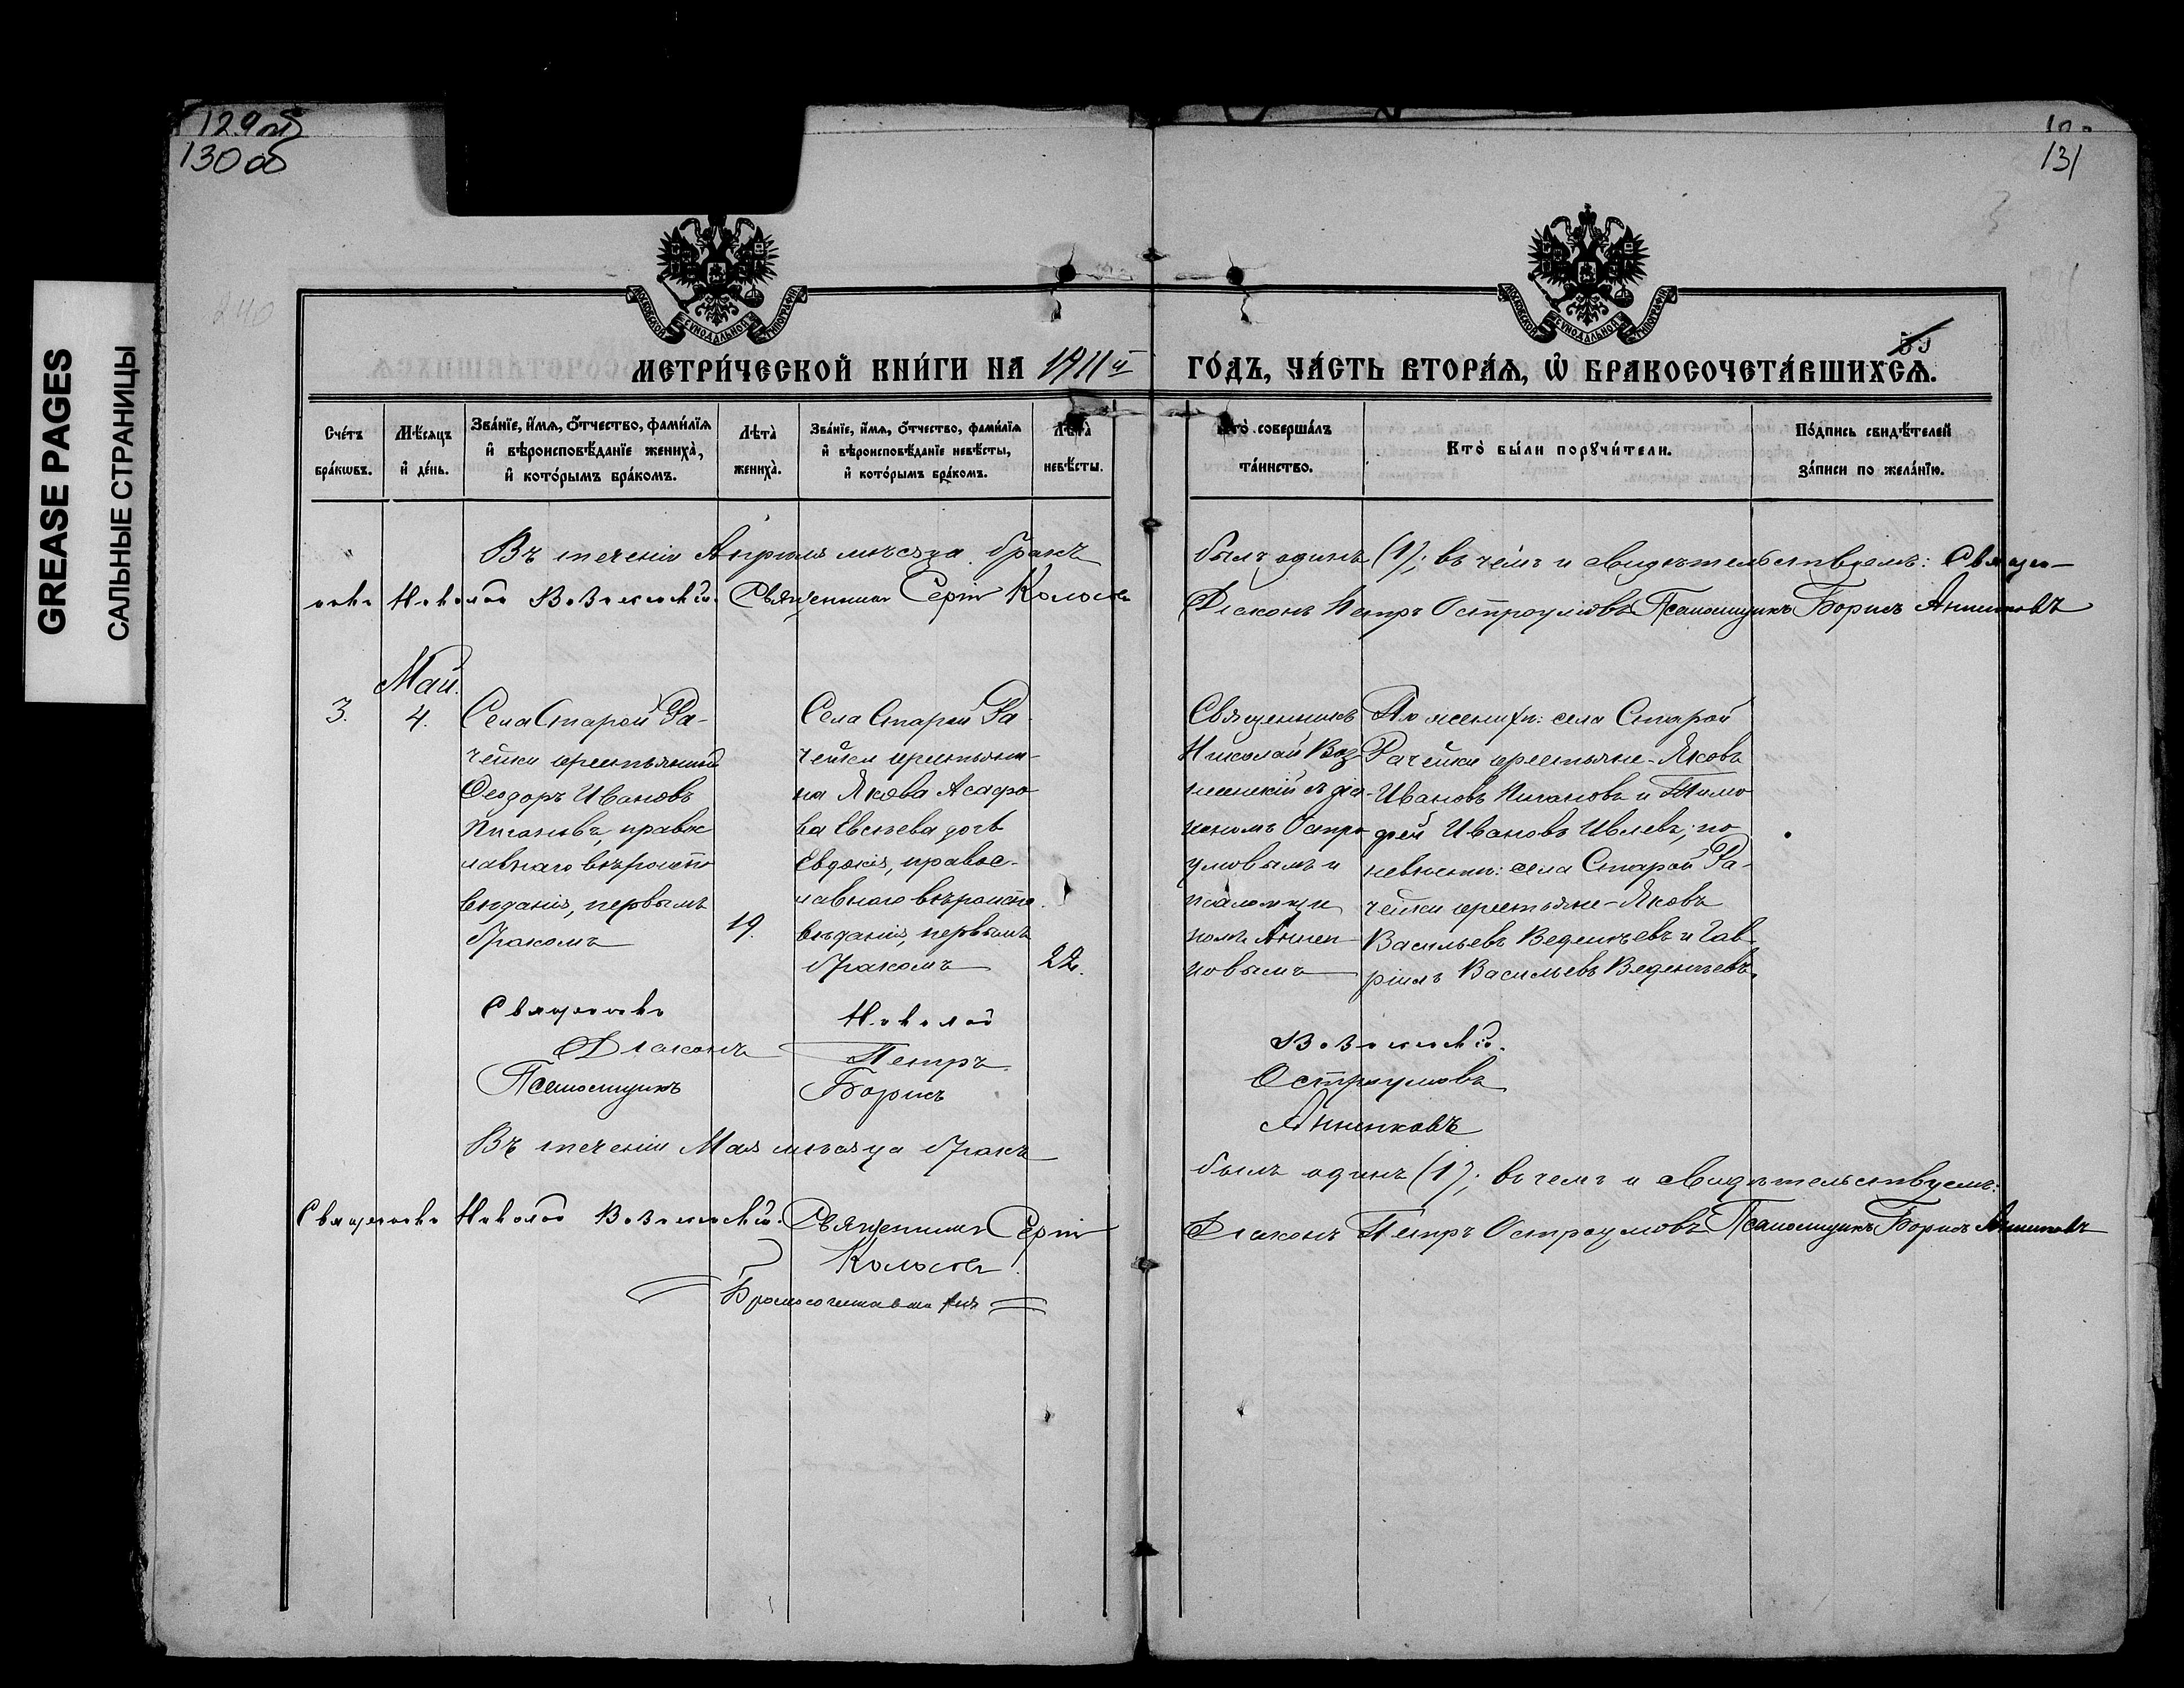 129об
130об
131
GREASE PAGES
САЛЬНЫЕ СТРАНИЦЫ
МОСКОВСКОЙ СѴНОДАЛЬНОЙ ТИПОГРАФІИ
МОСКОВСКОЙ СѴНОДАЛЬНОЙ ТИПОГРАФІИ
МЕТРИ́ЧЕСКОЙ КНИ́ГИ НА 1911й ГО́ДЪ, ЧА́СТЬ ВТОРА́Ѧ, Ѡ҆ БРАКОСОЧЕТА́ВШИХСѦ.
Сче́тъ бра́кωвъ.
Мѣ́сяцъ и҆ де́нь.
Зва́нїе, и҆́мѧ, ѻ҆́тчество, фами́лїѧ и҆ вѣроисповѣ́данїе жениха̀, и҆ кото́рымъ бра́комъ.
Лѣ́та̀ жениха̀.
Зва́нїе, и҆́мѧ, ѻ҆́тчество, фами́лїѧ и҆ вѣроисповѣ́данїе невѣ́сты, и҆ кото́рымъ бра́комъ.
Лѣ́та̀ невѣ́сты.
Кто̀ соверша́лъ та́инство.
Кто̀ бы́ли порꙋчи́тели.
По́дпись свидѣ́телей за́писи по жела́нїю.
Въ теченіи Апрѣля мѣсяца бракъ былъ одинъ (1); въ чемъ и свидѣтельствуемъ: Священ-
никъ Николай Вознесенскій. Священникъ Сергій Колосовъ Діаконъ Петръ Остроумовъ Псаломщикъ Борисъ Анненковъ
Май.
3.
4.
Села Старой Ра-
чейки крестьянинъ
Ѳеодоръ Ивановъ
Пигановъ, правос
лавнаго вѣроиспо
вѣданія, первымъ
бракомъ
19.
Села Старой Ра
чейки крестьяни-
на Якова Асафо
ва Евсѣева дочь
Евдокія, правос-
лавнаго вѣроиспо
вѣданія, первымъ
бракомъ
22.
Священникъ
Николай Воз
несенскій съ діа-
кономъ Остро
умовымъ и
псаломщи
комъ Аннен
ковымъ
По женихѣ: села Старой
Рачейки крестьяне-Яковъ
Ивановъ Пигановъ и Тимо
ѳей Ивановъ Ивлевъ; по
невѣстѣ: села Старой Ра-
чейки крестьяне-Яковъ
Васильевъ Веденѣевъ и Гав
ріилъ Васильевъ Веденѣевъ.
Священникъ Николай Вознесенскій.
Діаконъ Петръ Остроумовъ
Псаломщикъ Борисъ Анненковъ
Въ теченіи Мая мѣсяца бракъ былъ одинъ (1); въ чемъ и свидѣтельствуемъ:
Священникъ Николай Вознесенскій. Священникъ Сергій Діаконъ Петръ Остроумовъ Псаломщикъ Борисъ Анненковъ
Колосовъ